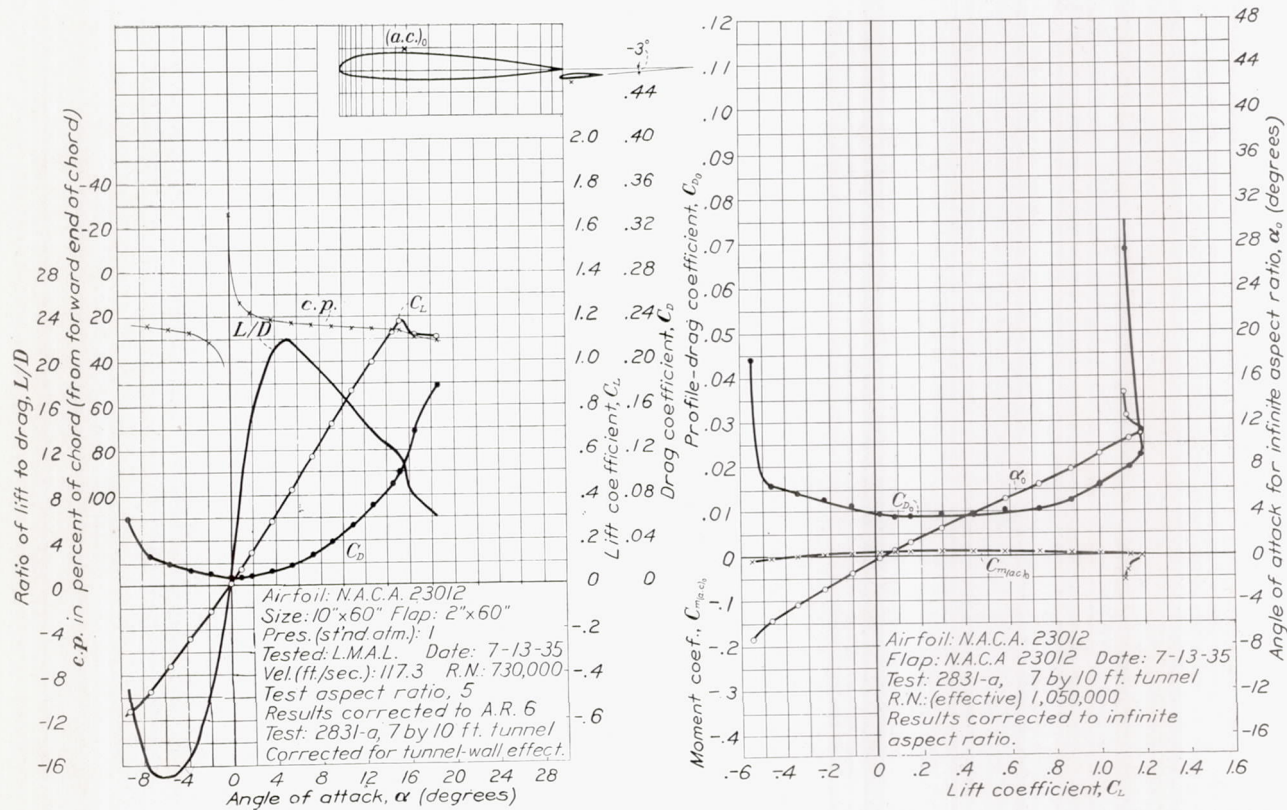 (a.c.)₀
-3°
.44
2.0 .40
1.8 .36
1.6 .32
1.4 .28
1.2 .24
1.0 .20
.8 .16
.6 .12
.4 .08
.2 .04
0 0
-.2
-.4
-.6
Lift coefficient, C_L
Drag coefficient, C_D
-40
-20
28 0
24 20
20 40
16 60
12 80
8 100
4
0
-4
-8
-12
-16
Ratio of lift to drag, L/D
c.p. in percent of chord (from forward end of chord)
c.p.
C_L
L/D
C_D
Airfoil: N.A.C.A. 23012
Size: 10"x60" Flap: 2"x60"
Pres. (st'nd. atm.): 1
Tested: L.M.A.L. Date: 7-13-35
Vel. (ft./sec.): 117.3 R.N.: 730,000
Test aspect ratio, 5
Results corrected to A.R. 6
Test: 2831-a, 7 by 10 ft. tunnel
Corrected for tunnel-wall effect.
-8 -4 0 4 8 12 16 20 24 28
Angle of attack, α (degrees)
.12
.11
.10
.09
.08
.07
.06
.05
.04
.03
.02
.01
0
-.1
-.2
-.3
-.4
Profile-drag coefficient, C_D₀
Moment coef., C_m(a.c.)₀
48
44
40
36
32
28
24
20
16
12
8
4
0
-4
-8
-12
-16
Angle of attack for infinite aspect ratio, α₀ (degrees)
α₀
C_D₀
C_m(a.c.)₀
Airfoil: N.A.C.A. 23012
Flap: N.A.C.A 23012 Date: 7-13-35
Test: 2831-a, 7 by 10 ft. tunnel
R.N.: (effective) 1,050,000
Results corrected to infinite
aspect ratio.
-.6 -.4 -.2 0 .2 .4 .6 .8 1.0 1.2 1.4 1.6
Lift coefficient, C_L